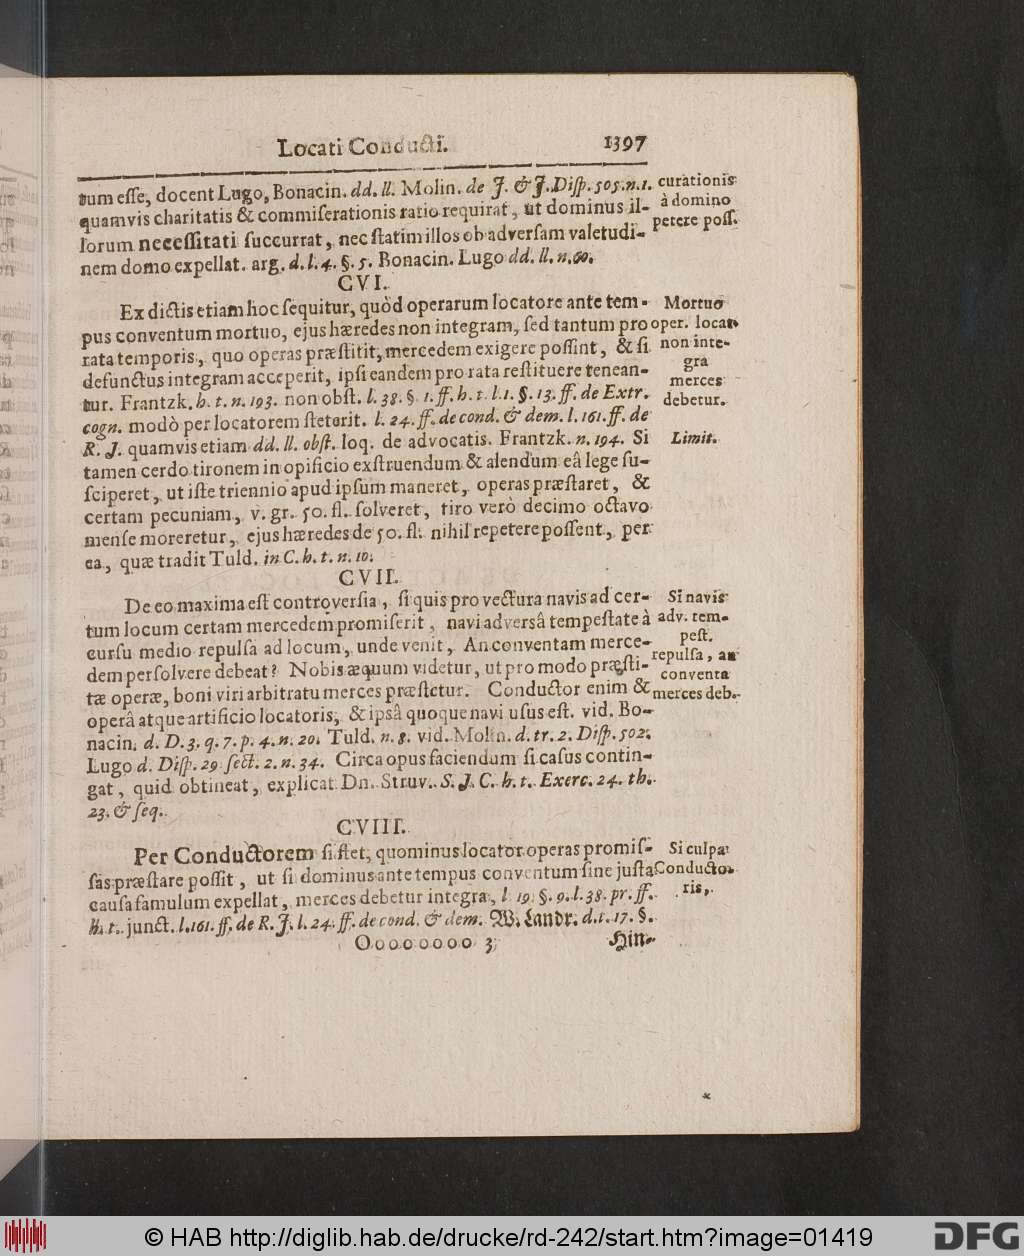 Locati Conducti. 1397
tum esse, docent Lugo, Bonacin. dd. ll. Molin. de J. & J. Disp. 505. n. 1.
quamvis charitatis & commiserationis ratio requirat, ut dominus il-
lorum necessitati succurrat, nec statim illos ob adversam valetudi-
nem domo expellat. arg. d. l. 4. §. 5. Bonacin. Lugo dd. ll. n. 60.
curationis
à domino
petere poss.
CVI.
Ex dictis etiam hoc sequitur, quòd operarum locatore ante tem-
pus conventum mortuo, ejus hæredes non integram, sed tantum pro
rata temporis, quo operas præstitit, mercedem exigere possint, & si
defunctus integram acceperit, ipsi eandem pro rata restituere tenean-
tur. Frantzk. h. t. n. 193. non obst. l. 38. §. 1. ff. h. t. l. 1. §. 13. ff. de Extr.
cogn. modò per locatorem steterit. l. 24. ff. de cond. & dem. l. 161. ff. de
R. J. quamvis etiam dd. ll. obst. loq. de advocatis. Frantzk. n. 194. Si
tamen cerdo tironem in opificio exstruendum & alendum eâ lege su-
sciperet, ut iste triennio apud ipsum maneret, operas præstaret, &
certam pecuniam, v. gr. 50. fl. solveret, tiro verò decimo octavo
mense moreretur, ejus hæredes de 50. fl. nihil repetere possent, per
ea, quæ tradit Tuld. in C. h. t. n. 10.
Mortuo
oper. locat
non inte-
gra
merces
debetur.
Limit.
CVII.
De eo maxima est controversia, si quis pro vectura navis ad cer-
tum locum certam mercedem promiserit, navi adversâ tempestate à
cursu medio repulsa ad locum, unde venit, An conventam merce-
dem persolvere debeat? Nobis æquum videtur, ut pro modo præsti-
tæ operæ, boni viri arbitratu merces præstetur. Conductor enim &
operâ atque artificio locatoris, & ipsâ quoque navi usus est. vid. Bo-
nacin. d. D. 3. q. 7. p. 4. n. 20. Tuld. n. 8. vid. Molin. d. tr. 2. Disp. 502.
Lugo d. Disp. 29. sect. 2. n. 34. Circa opus faciendum si casus contin-
gat, quid obtineat, explicat Dn. Struv. S. J. C. h. t. Exerc. 24. th.
23. & seq.
Si navis
adv. tem-
pest.
repulsa, an
conventa
merces deb.
CVIII.
Per Conductorem si stet, quominus locator operas promis-
sas præstare possit, ut si dominus ante tempus conventum sine justa
causa famulum expellat, merces debetur integra, l. 19. §. 9. l. 38. pr. ff.
h. t. junct. l. 161. ff. de R. J. l. 24. ff. de cond. & dem. W. Landr. d. t. 17. §.
Si culpa
Conducto-
ris,
Oooooooo 3 Hin-
© HAB http://diglib.hab.de/drucke/rd-242/start.htm?image=01419
DFG